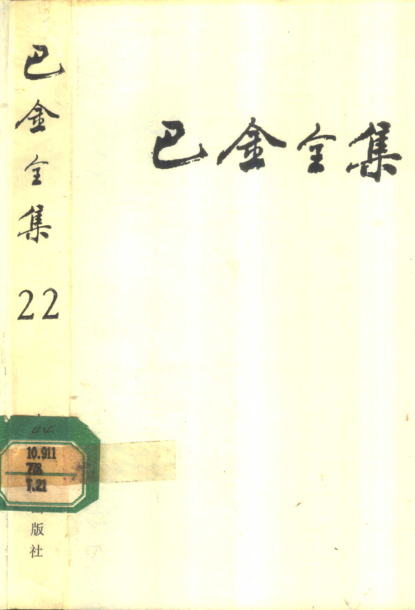 巴金全集
22
10.911
版社
巴金全集